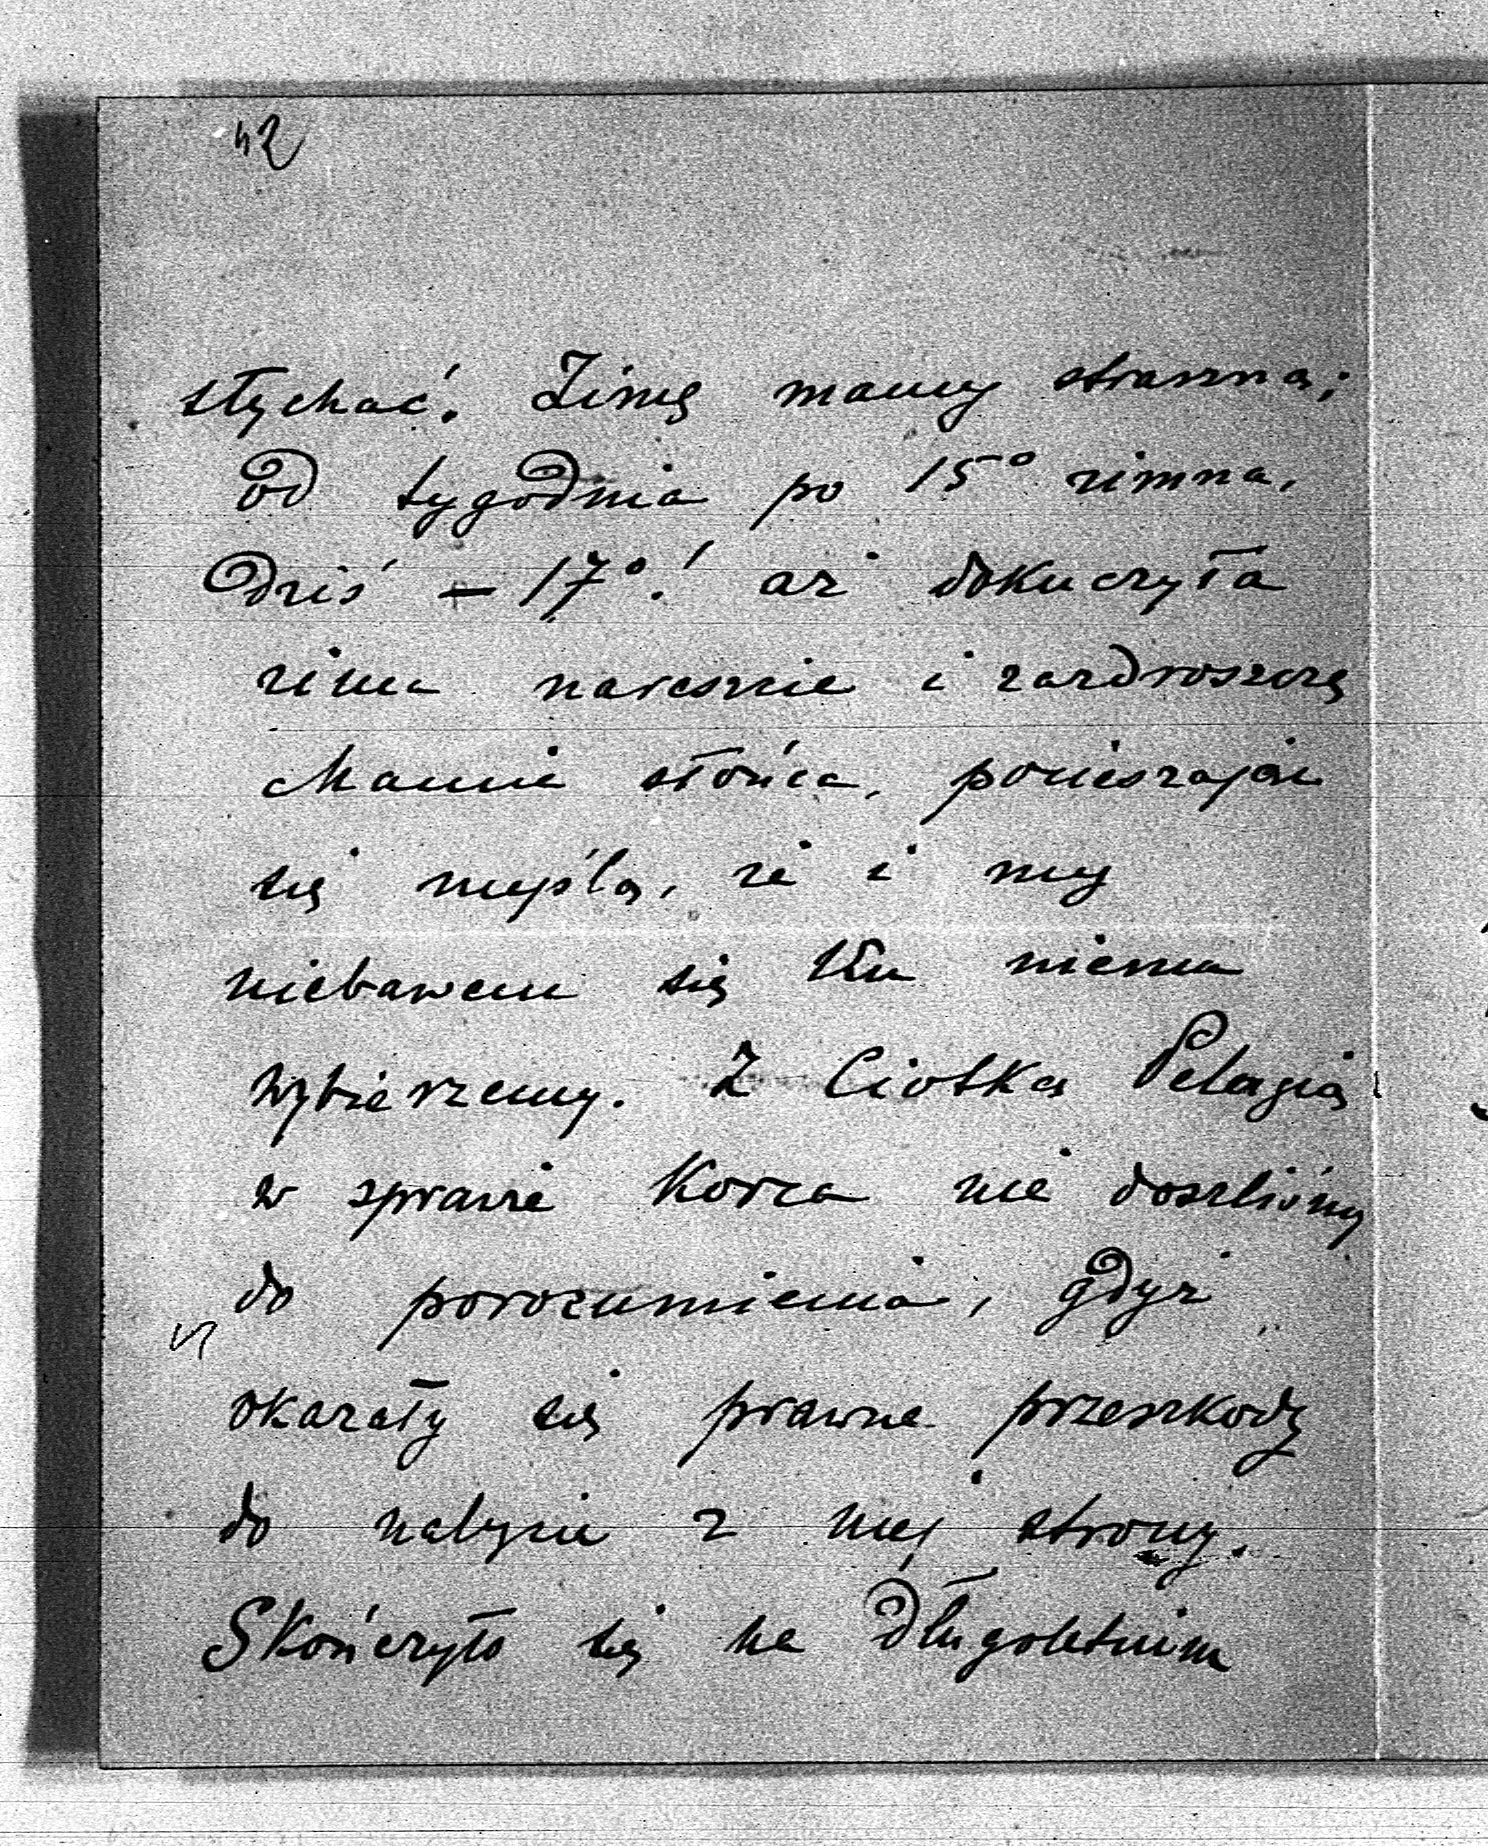 42
słychać. Zimę mamy straszną;
od tygodnia po 15° zimna.
Dziś – 17°! aż dokuczyła
zima nareszcie i zazdroszczę
Mamie słońca, pocieszając
się myślą, że i my
niebawem się ku niemu
wybierzemy. Z Ciotką Pelagią
w sprawie Korca nie doszliśmy
do porozumienia, gdyż
okazały się prawne przeszkody
do nabycia z niej strony.
Skończyło się na długoletnim